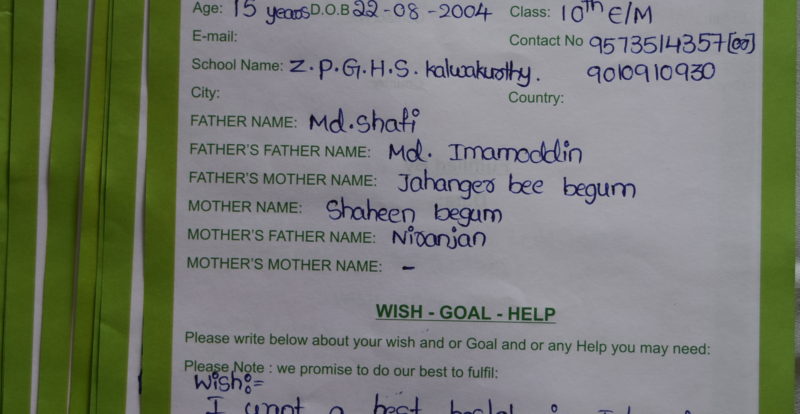 Age: 15 years D.O.B 22-08-2004 Class: 10th E/M
E-mail: Contact No 9573514357[00]
School Name: Z.P.G.H.S. Kalwakurthy. 9010910930
City: Country:
FATHER NAME: Md.Shafi
FATHER'S FATHER NAME: Md. Imamoddin
FATHER'S MOTHER NAME: Jahanger bee begum
MOTHER NAME: Shaheen begum
MOTHER'S FATHER NAME: Niranjan
MOTHER'S MOTHER NAME: -
WISH - GOAL - HELP
Please write below about your wish and or Goal and or any Help you may need:
Please Note : we promise to do our best to fulfil:
Wish:=
I want a best